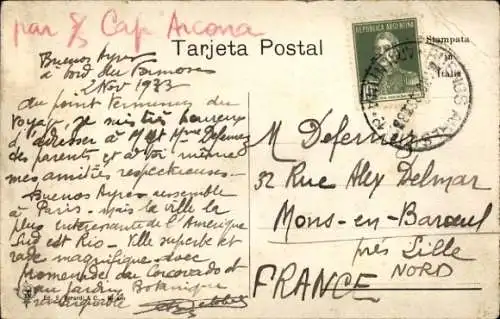 par S/S Cap Arcona
Tarjeta Postal
REPUBLICA ARGENTINA
Stampata
in
Italia
BUENOS AIRES
Buenos Ayres
a bord du Formose
2 Nov 1933
du point terminus du
voyage, je suis très heureux
d'adresser à M et Mme
des parents et à toi mine
mes amitiés respectueuses
Buenos Ayres ressemble
à Paris mais la ville la
plus intéressante de l'Amérique
Sud est Rio. Ville superbe et
rade magnifique avec
promenades du Corcovado et
au jardin Botanique
remarquable
M Defernez
32 Rue Alex Delmar
Mons-en-Baroeul
près Lille
NORD
FRANCE